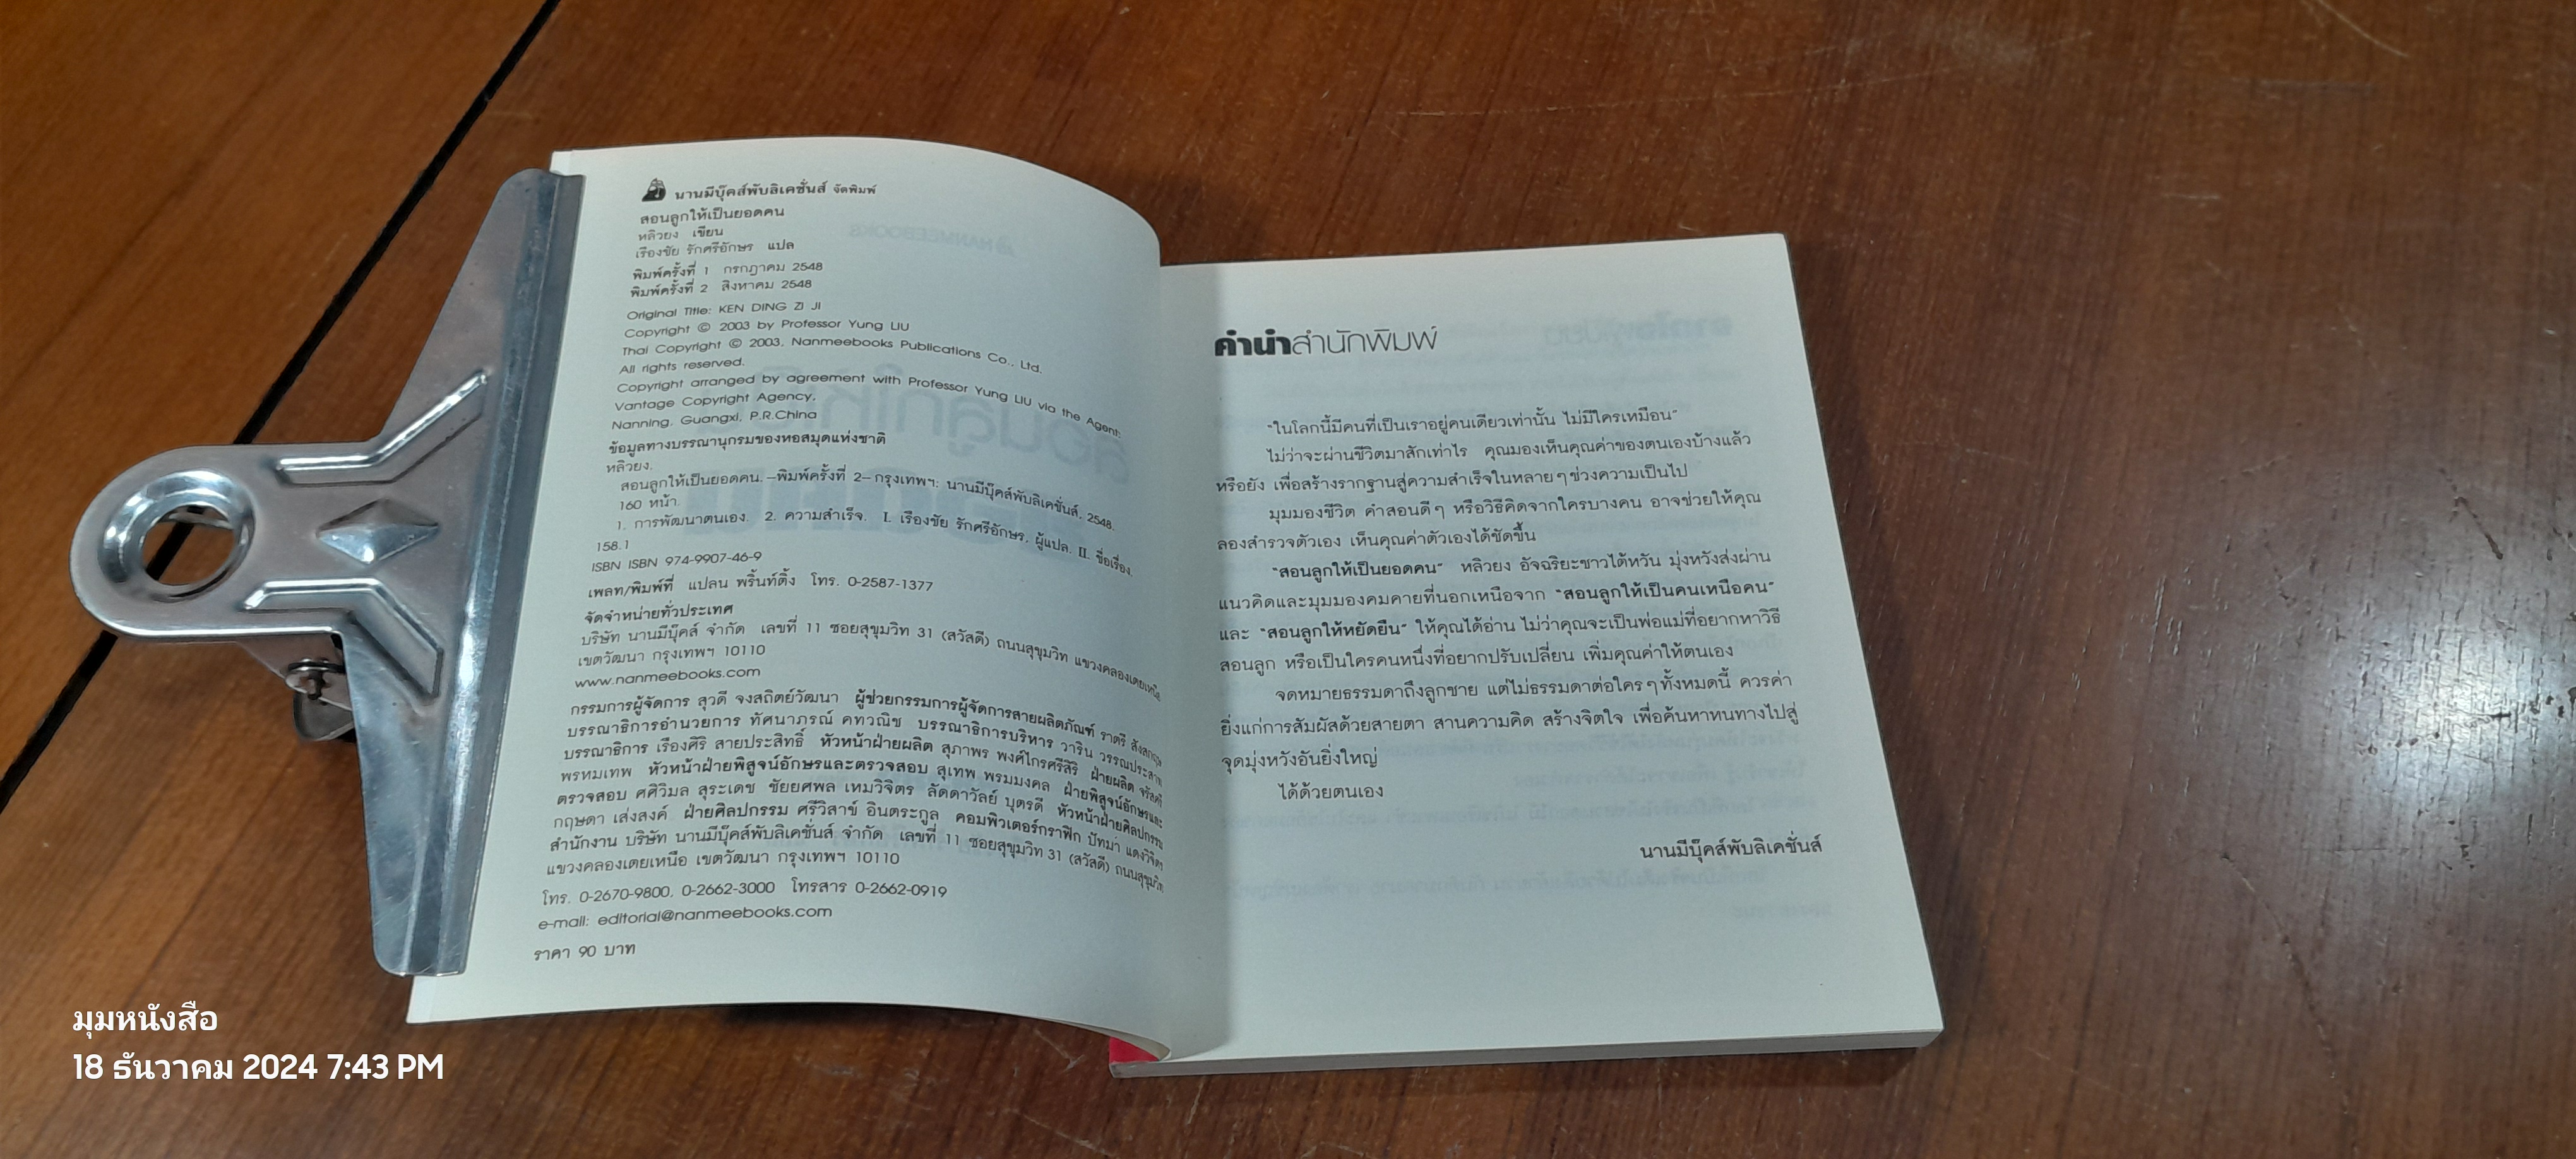 นานมีบุ๊คส์พับลิเคชั่นส์ จัดพิมพ์
สอนลูกให้เป็นยอดคน
หลิวยง เขียน
เรืองชัย รักศรีอักษร แปล
พิมพ์ครั้งที่ 1 กรกฎาคม 2548
พิมพ์ครั้งที่ 2 สิงหาคม 2548
Original Title: KEN DING ZI JI
Copyright © 2003 by Professor Yung LIU
Thai Copyright © 2003, Nanmeebooks Publications Co., Ltd.
All rights reserved.
Copyright arranged by agreement with Professor Yung LIU via the Agent:
Vantage Copyright Agency,
Nanning, Guangxi, P.R.China
ข้อมูลทางบรรณานุกรมของหอสมุดแห่งชาติ
หลิวยง.
สอนลูกให้เป็นยอดคน.--พิมพ์ครั้งที่ 2-- กรุงเทพฯ: นานมีบุ๊คส์พับลิเคชั่นส์, 2548.
160 หน้า.
1. การพัฒนาตนเอง. 2. ความสำเร็จ. I. เรืองชัย รักศรีอักษร, ผู้แปล. II. ชื่อเรื่อง.
158.1
ISBN ISBN 974-9907-46-9
เพลท/พิมพ์ที่ แปลน พริ้นท์ติ้ง โทร. 0-2587-1377
จัดจำหน่ายทั่วประเทศ
บริษัท นานมีบุ๊คส์ จำกัด เลขที่ 11 ซอยสุขุมวิท 31 (สวัสดี) ถนนสุขุมวิท แขวงคลองเตยเหนือ
เขตวัฒนา กรุงเทพฯ 10110
www.nanmeebooks.com
กรรมการผู้จัดการ สุวดี จงสถิตย์วัฒนา ผู้ช่วยกรรมการผู้จัดการสายผลิตภัณฑ์ ราตรี
บรรณาธิการอำนวยการ ทัศนาภรณ์ คทวณิช บรรณาธิการบริหาร วาริน วรรณประสาท
บรรณาธิการ เรืองศิริ สายประสิทธิ์ หัวหน้าฝ่ายผลิต สุภาพร พงศ์ไกรศรีสิริ ฝ่ายผลิต จรัสศรี
พรหมเทพ หัวหน้าฝ่ายพิสูจน์อักษรและตรวจสอบ สุเทพ พรมมงคล ฝ่ายพิสูจน์อักษรและ
ตรวจสอบ ศศิวิมล สุระเดช ชัยยศพล เหมวิจิตร ลัดดาวัลย์ บุตรดี หัวหน้าฝ่ายศิลปกรรม
กฤษดา เส่งสงค์ ฝ่ายศิลปกรรม ศรีวิสาข์ อินตระกูล คอมพิวเตอร์กราฟิก ปัทมา แดงวิจิตร
สำนักงาน บริษัท นานมีบุ๊คส์พับลิเคชั่นส์ จำกัด เลขที่ 11 ซอยสุขุมวิท 31 (สวัสดี) ถนนสุขุมวิท
แขวงคลองเตยเหนือ เขตวัฒนา กรุงเทพฯ 10110
โทร. 0-2670-9800, 0-2662-3000 โทรสาร 0-2662-0919
e-mail: editorial@nanmeebooks.com
ราคา 90 บาท
คำนำสำนักพิมพ์
"ในโลกนี้มีคนที่เป็นเราอยู่คนเดียวเท่านั้น ไม่มีใครเหมือน"
ไม่ว่าจะผ่านชีวิตมาสักเท่าไร คุณมองเห็นคุณค่าของตนเองบ้างแล้ว
หรือยัง เพื่อสร้างรากฐานสู่ความสำเร็จในหลายๆ ช่วงความเป็นไป
มุมมองชีวิต คำสอนดีๆ หรือวิธีคิดจากใครบางคน อาจช่วยให้คุณ
ลองสำรวจตัวเอง เห็นคุณค่าตัวเองได้ชัดขึ้น
"สอนลูกให้เป็นยอดคน" หลิวยง อัจฉริยะชาวไต้หวัน มุ่งหวังส่งผ่าน
แนวคิดและมุมมองคมคายที่นอกเหนือจาก "สอนลูกให้เป็นคนเหนือคน"
และ "สอนลูกให้หยัดยืน" ให้คุณได้อ่าน ไม่ว่าคุณจะเป็นพ่อแม่ที่อยากหาวิธี
สอนลูก หรือเป็นใครคนหนึ่งที่อยากปรับเปลี่ยน เพิ่มคุณค่าให้ตนเอง
จดหมายธรรมดาถึงลูกชาย แต่ไม่ธรรมดาต่อใครๆ ทั้งหมดนี้ ควรค่า
ยิ่งแก่การสัมผัสด้วยสายตา สานความคิด สร้างจิตใจ เพื่อค้นหาหนทางไปสู่
จุดมุ่งหวังอันยิ่งใหญ่
ได้ด้วยตนเอง
นานมีบุ๊คส์พับลิเคชั่นส์
มุมหนังสือ
18 ธันวาคม 2024 7:43 PM